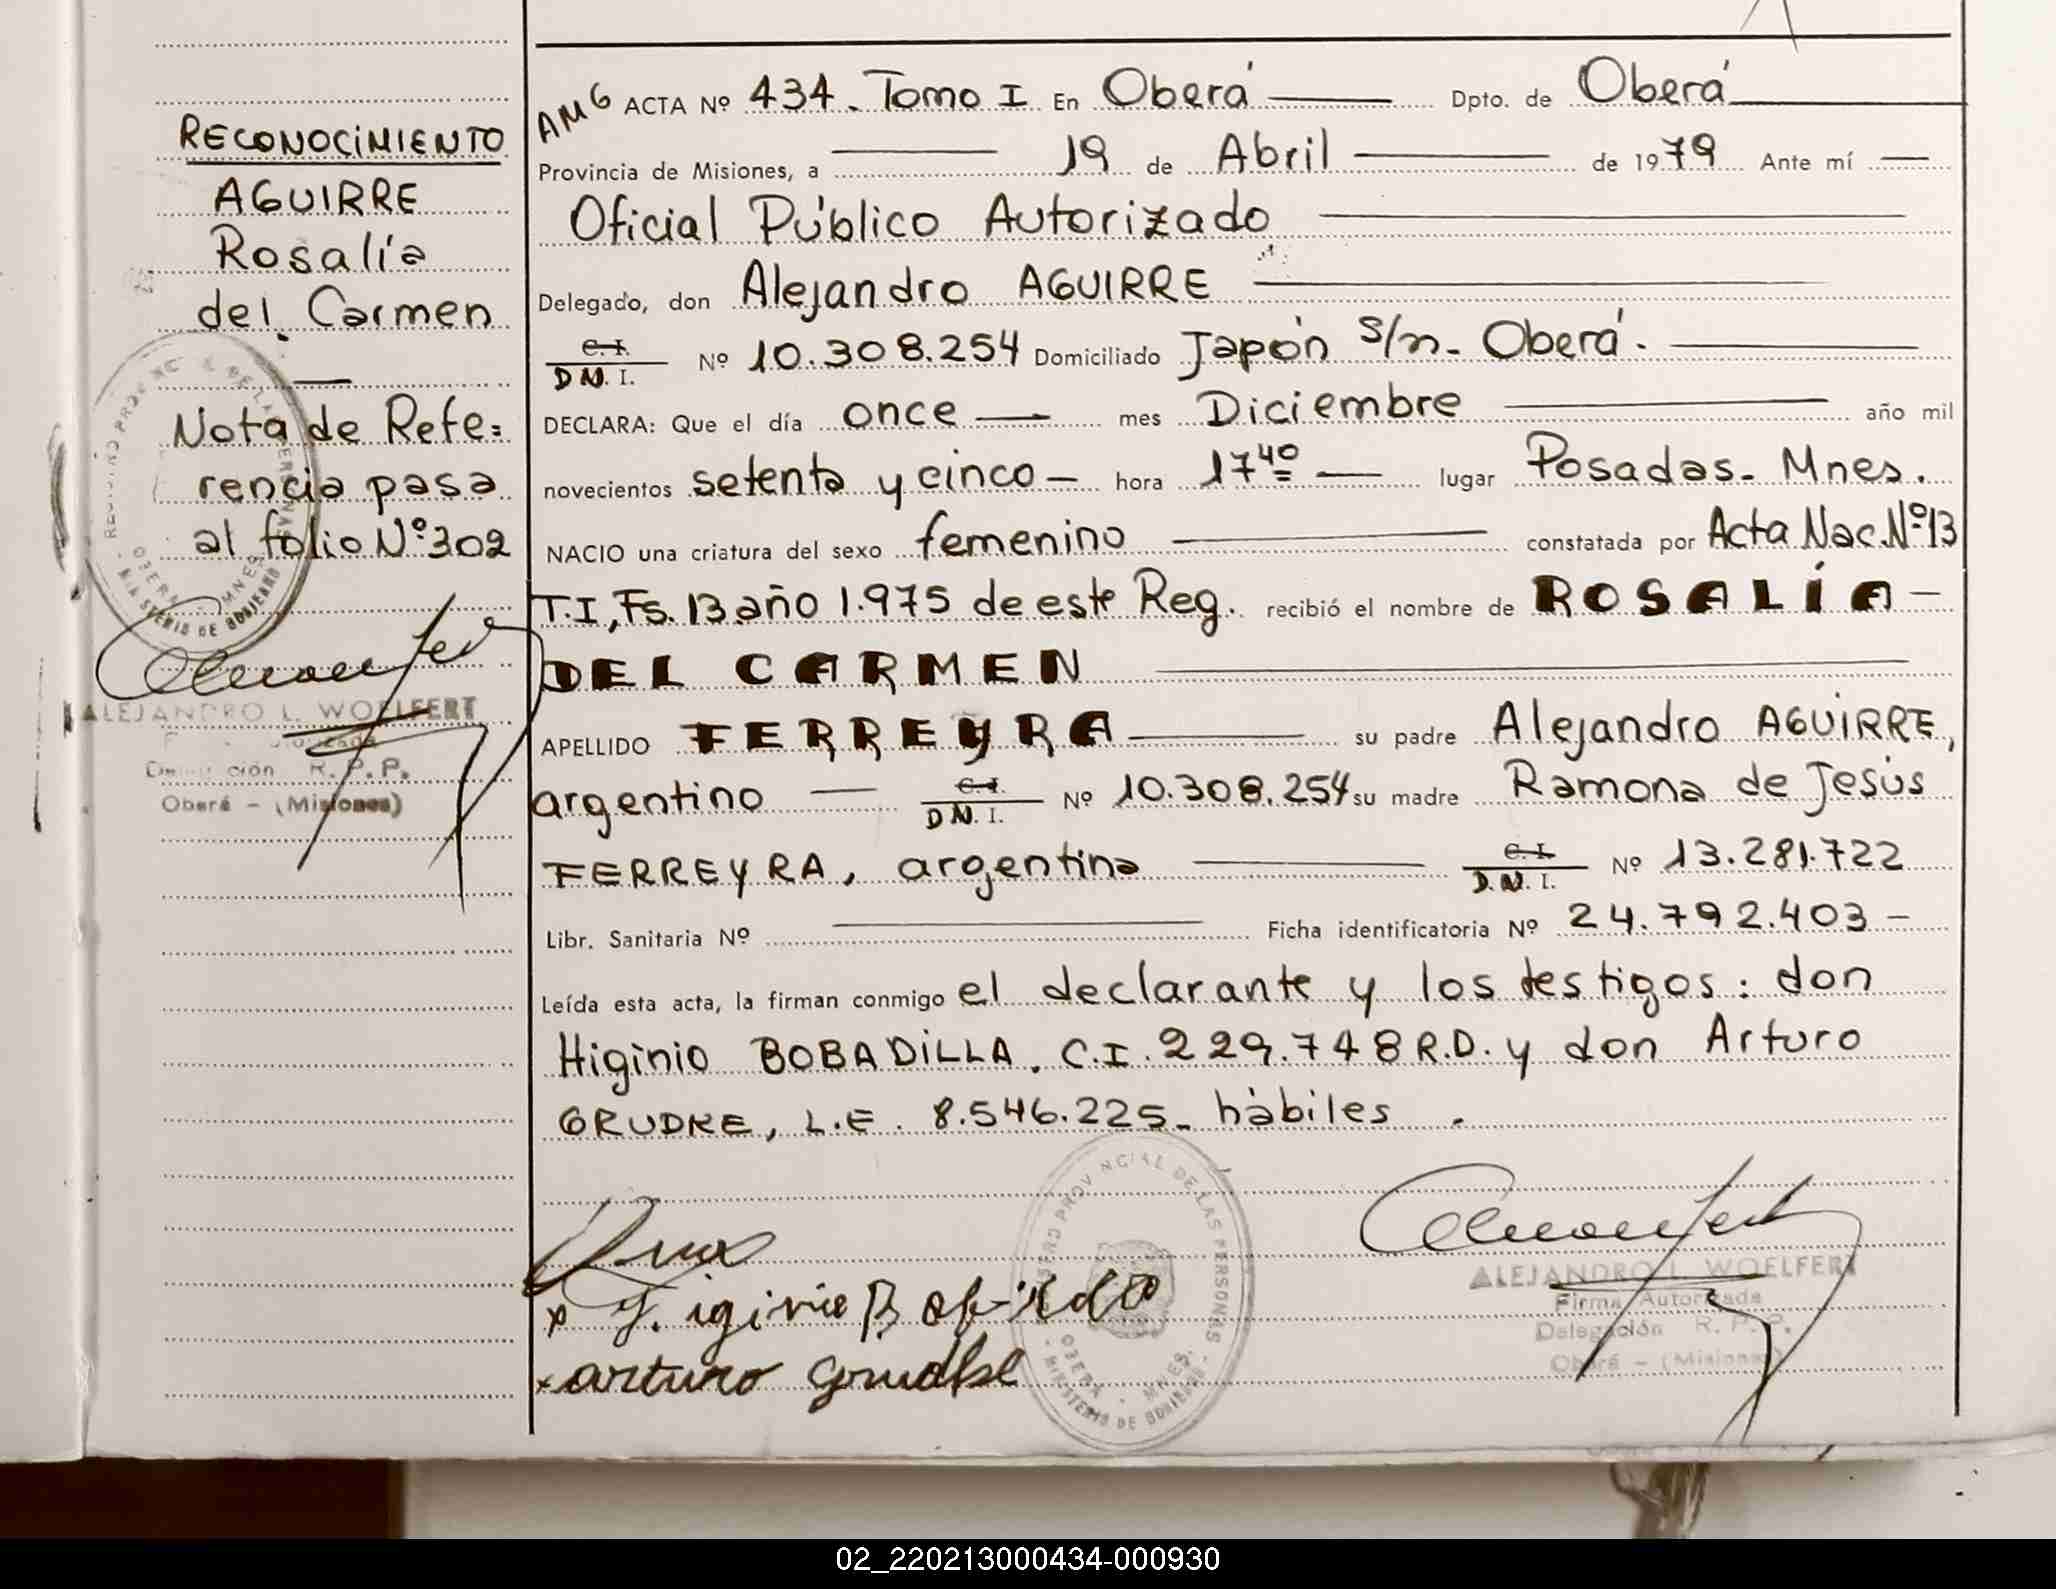 RECONOCIMIENTO
AGUIRRE
Rosalía
del Carmen
Nota de Refe=
rencia pasa
al folio Nº 302
ALEJANDRO L. WOELFERT
R. P. P.
Oberá - (Misiones)
AMG ACTA Nº 434. Tomo I En Oberá Dpto. de Oberá
Provincia de Misiones, a 19 de Abril de 1979 Ante mí
Oficial Público Autorizado
Delegado, don Alejandro AGUIRRE
C. I.
D N. I. Nº 10.308.254 Domiciliado Japón s/n. Oberá.
DECLARA: Que el día once mes Diciembre año mil
novecientos setenta y cinco hora 17 40 lugar Posadas. Mnes.
NACIO una criatura del sexo femenino constatada por Acta Nac. Nº 13
T.I, Fs. 13 año 1.975 de este Reg. recibió el nombre de ROSALÍA
DEL CARMEN
APELLIDO FERREYRA su padre Alejandro AGUIRRE,
argentino C. I.
D N. I. Nº 10.308.254 su madre Ramona de Jesús
FERREYRA, argentina C. I.
D. N. I. Nº 13.281.722
Libr. Sanitaria Nº Ficha identificatoria Nº 24.792.403
Leída esta acta, la firman conmigo el declarante y los testigos: don
Higinio BOBADILLA. C.I. 229.748 R.D. y don Arturo
GRUDKE, L.E. 8.546.225. hábiles.
REGISTRO PROVINCIAL DE LAS PERSONAS
OBERA - MNES.
MINISTERIO DE GOBIERNO
arturo Grudke
ALEJANDRO L. WOELFERT
Firma Autorizada
Delegación R. P. P.
Oberá - (Misiones)
02_220213000434-000930